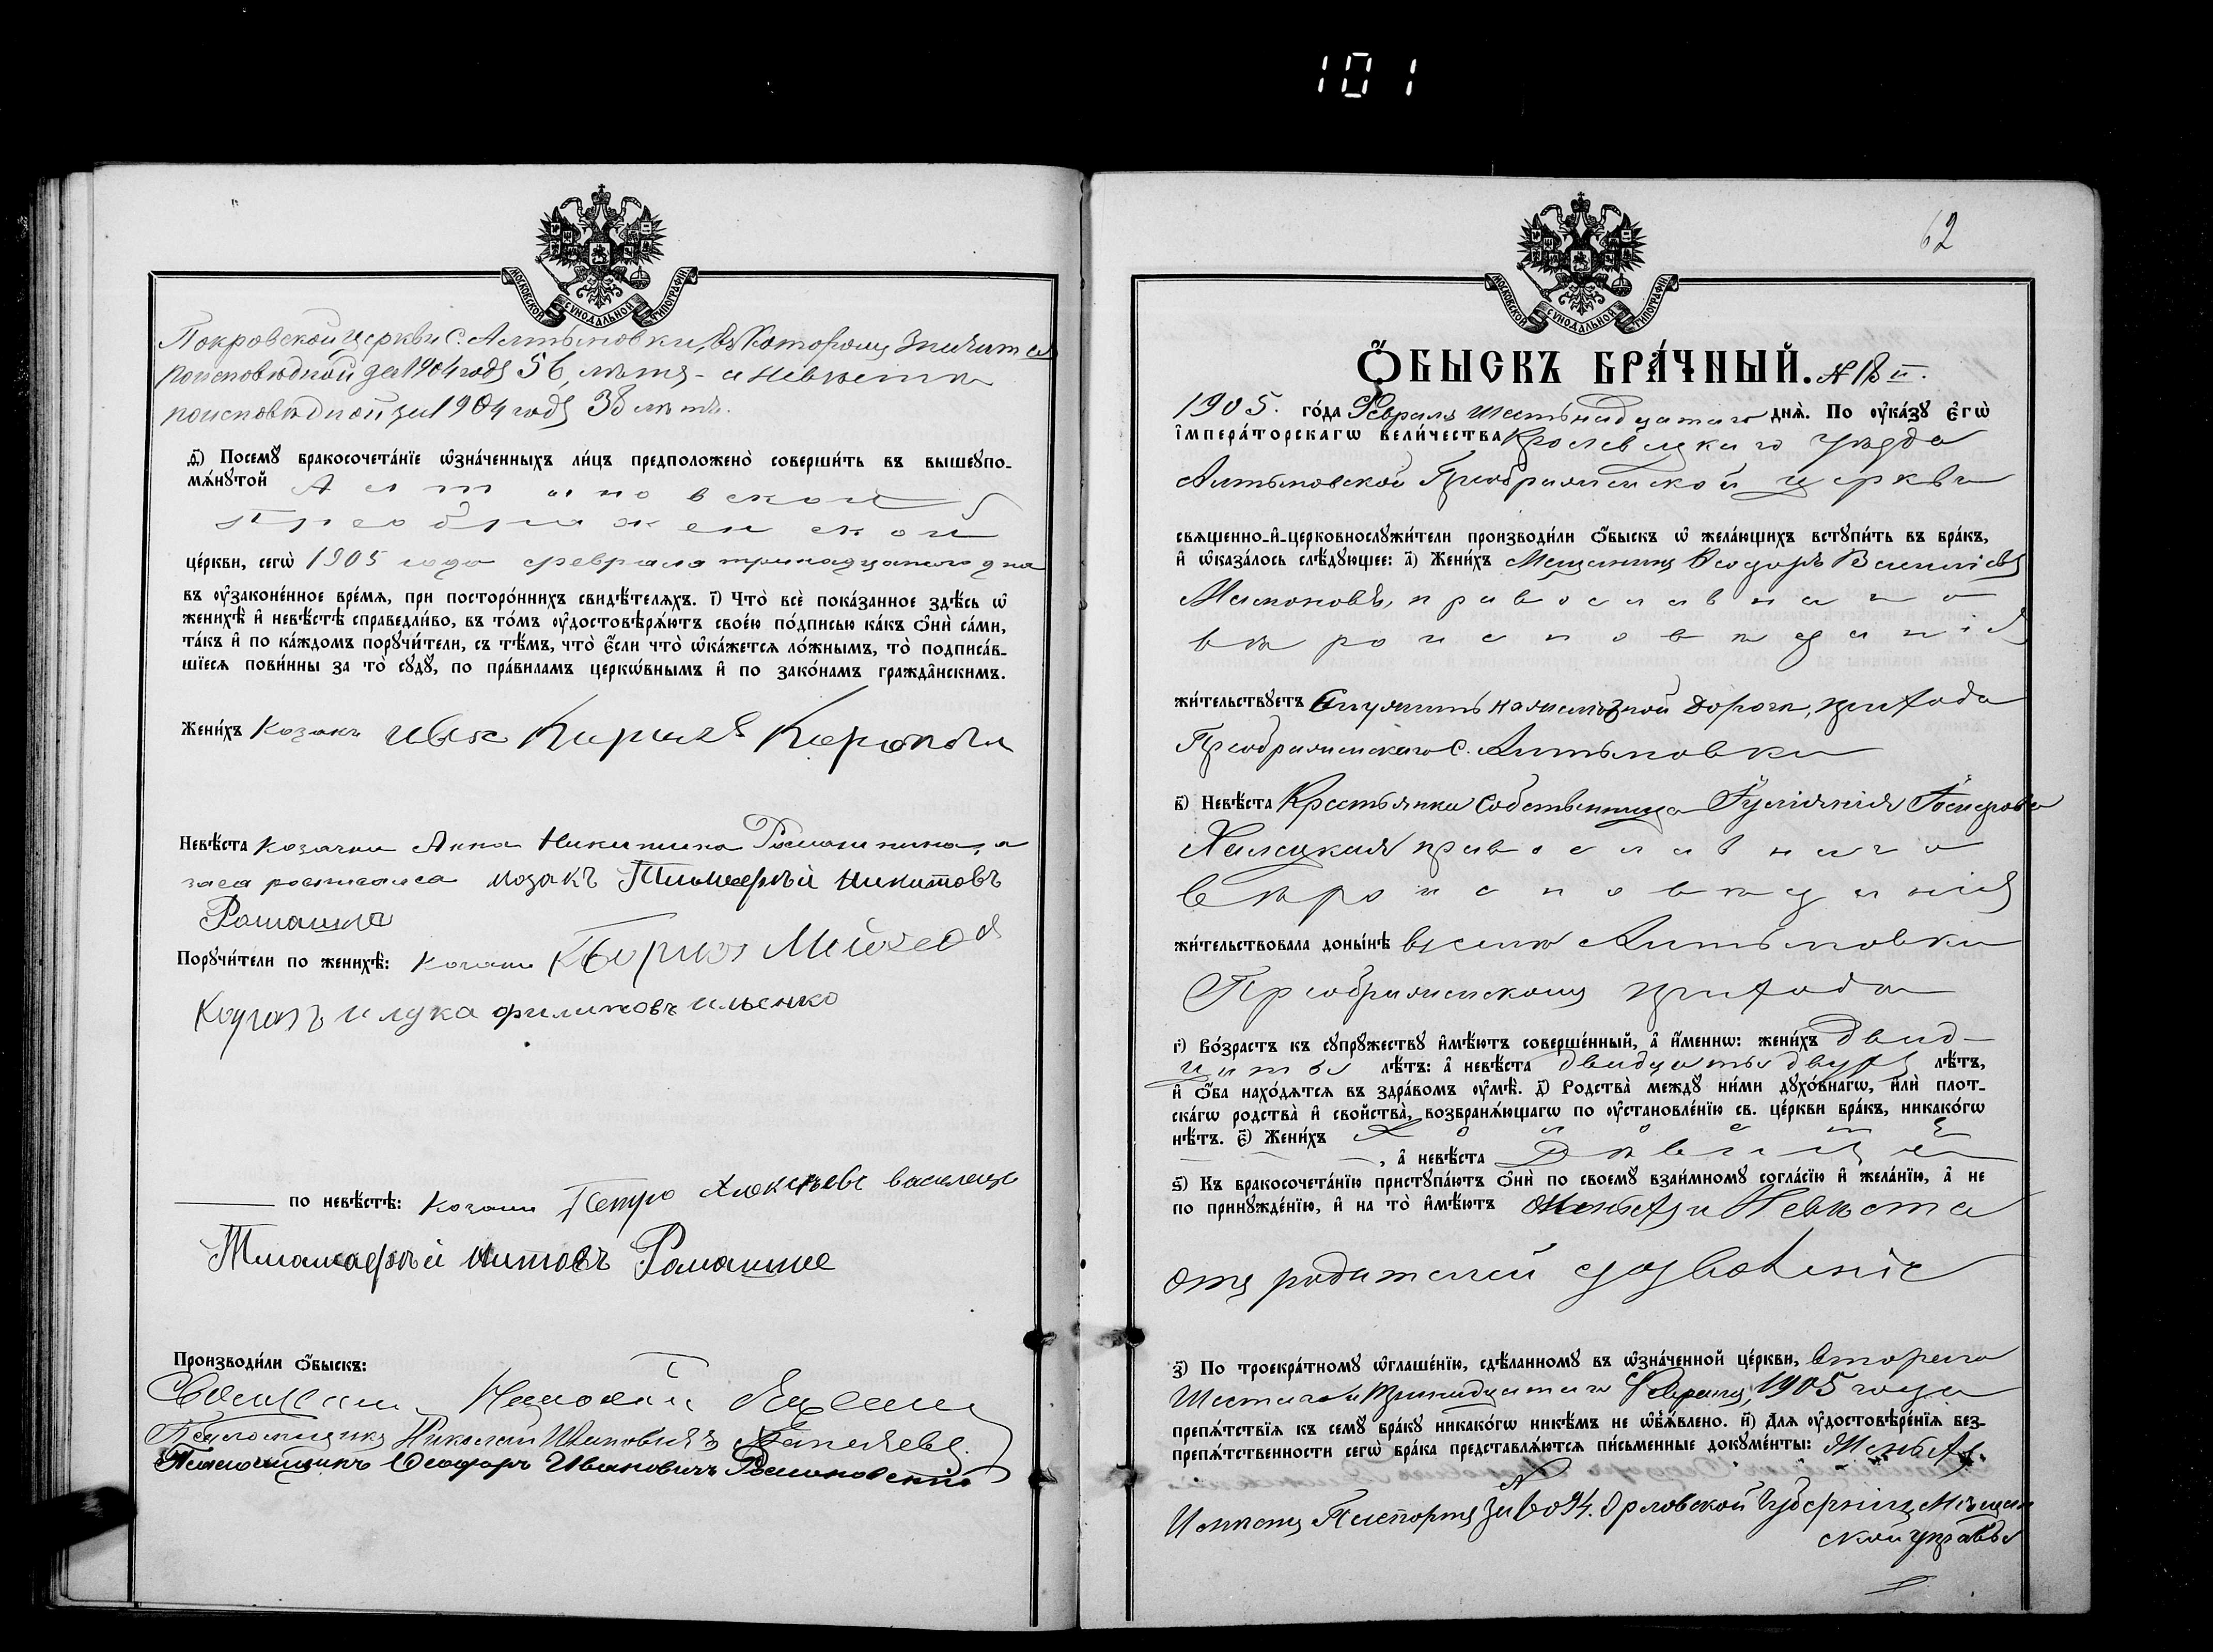 101
МОСКОВСКОЙ СѴНОДАЛЬНОЙ ТИПОГРАФІИ
Покровской церкви с. Алтыновки, въ которомъ значится
по исповѣдной за 1904 годъ 56 лѣтъ - а невѣста
по исповѣдной за 1904 годъ 38 лѣтъ.
Ѳ҃) Посемꙋ бракосочета́нїе ѡ҆зна́ченныхъ ли́цъ предположено̀ соверши́ть въ вышеꙋпо-
мѧ́нꙋтой Алтыновской
Преображенской
це́ркви, сегѡ̀ 1905 года февраля тринадцатого дня
въ ᲂу҆зако́ненное вре́мѧ, при посторо́ннихъ свидѣ́телѧхъ. І҃) Что̀ всѐ пока́занное здѣ́сь ѡ҆
женихѣ̀ и҆ невѣ́стѣ справедли́во, въ то́мъ ᲂу҆достовѣрѧ́ютъ свое́ю по́дписью ка́къ ѻ҆нѝ са́ми,
та́къ и҆ по ка́ждомъ порꙋчи́тели, съ тѣ́мъ, что̀ є҆́сли что̀ ѡ҆ка́жетсѧ ло́жнымъ, то̀ подписа́в-
шїесѧ пови́нны за то̀ сꙋдꙋ̀, по пра́виламъ церкѡ́внымъ и҆ по зако́намъ гражда̂нскимъ.
Жени́хъ Козакъ
Невѣ́ста козачка Анна Никитина Ромашкина, а
за ея росписался козакъ Тимофѣй Никитовъ
Ромашка
Порꙋчи́тели по женихѣ̀: козаки
Козакъ и лука филиповъ ильенко
по невѣ́стѣ: козаки Петро Алексѣевъ
Тимофѣй Ромашка
Производи́ли ѻ҆́быскъ:
Священникъ
Псаломщикъ Николай Ивановичъ
Псаломщикъ Ѳеодоръ Ивановичъ Романовскій
62
МОСКОВСКОЙ СѴНОДАЛЬНОЙ ТИПОГРАФІИ
Ѻ҆́БЫСКЪ БРА́ЧНЫЙ. № 18
1905. го́да Февраля шестьнадцатаго днѧ̀. По ᲂу҆ка́зꙋ є҆гѡ̀
і҆мпера́торскагѡ вели́чества Кролевецкаго уѣзда
Алтыновской Преображенской церкви
свѧщенно-и҆-церковнослꙋжи́тели производи́ли ѻ҆́быскъ ѡ҆ жела́ющихъ встꙋпи́ть въ бра́къ,
и҆ ѡ҆каза́лось слѣ́дꙋющее: а҃) Жени́хъ Мещанинъ Ѳеодоръ Васильевъ
православнаго
вѣроисповѣданія
жи́тельствꙋетъ Служитъ на желѣзной дороги, прихода
Преображенскаго с. Алтыновки
в҃) Невѣ́ста Крестьянка собственница
Халецкая православнаго
вѣроисповѣданія
жи́тельствовала доны́нѣ въ селѣ Алтыновки
Преображенскомъ прихода
г҃) Во́зрастъ къ сꙋпрꙋжествꙋ и҆мѣ́ютъ соверше́нный, а҆ и҆́меннѡ: жени́хъ двад-
цать лѣ́тъ: а҆ невѣ́ста двадцать двухъ лѣ́тъ,
и҆ ѻ҆́ба нахо́дѧтсѧ въ здра́вомъ ᲂу҆мѣ̀. д҃) Родства̀ междꙋ̀ ни́ми дꙋхо́внагѡ, и҆лѝ плот-
ска́гѡ родства̀ и҆ свойства̀, возбранѧ́ющагѡ по ᲂу҆становле́нїю св. це́ркви бра́къ, никако́гѡ
нѣ́тъ. є҃) Жени́хъ Холостъ
, а҆ невѣ́ста Дѣвица
ѕ҃) Къ бракосочета́нїю пристꙋпа́ютъ ѻ҆нѝ по своемꙋ̀ взаи́мномꙋ согла́сїю и҆ жела́нїю, а҆ не
по принꙋжде́нїю, и҆ на то̀ и҆мѣ́ютъ Женихъ и Невѣста
отъ родителей дозволеніе
з҃) По троекра́тномꙋ ѡ҆глаше́нїю, сдѣ́ланномꙋ въ ѡ҆зна́ченной це́ркви, второго
Шестаго и тринадцатаго Февраля, 1905 года
препѧ́тствїѧ къ семꙋ̀ бра́кꙋ никако́гѡ никѣ́мъ не ѡ҆б̾ѧ́влено. и҃) Длѧ ᲂу҆достовѣре́нїѧ без-
препѧ́тственности сегѡ̀ бра́ка представлѧ́ютсѧ пи́сьменные докꙋме́нты: Женихъ
Имѣетъ Паспортъ за № 6094. Орловской губерніи, Мѣщан
ской управы